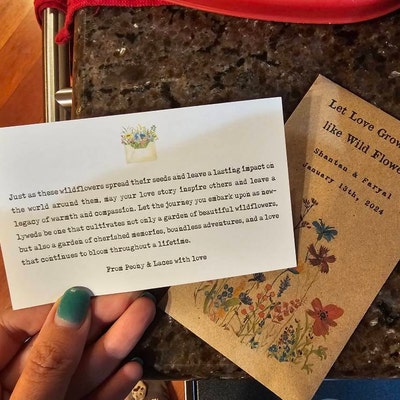 Just as these wildflowers spread their seeds and leave a lasting impact on
the world around them, may your love story inspire others and leave a
legacy of warmth and compassion. Let the journey you embark upon as new-
lyweds be one that cultivates not only a garden of beautiful wildflowers,
but also a garden of cherished memories, boundless adventures, and a love
that continues to bloom throughout a lifetime.
From Peony & Laces with love
Let Love Grow
like Wild Flowe
Shantan & Faryal
January 13th, 2024